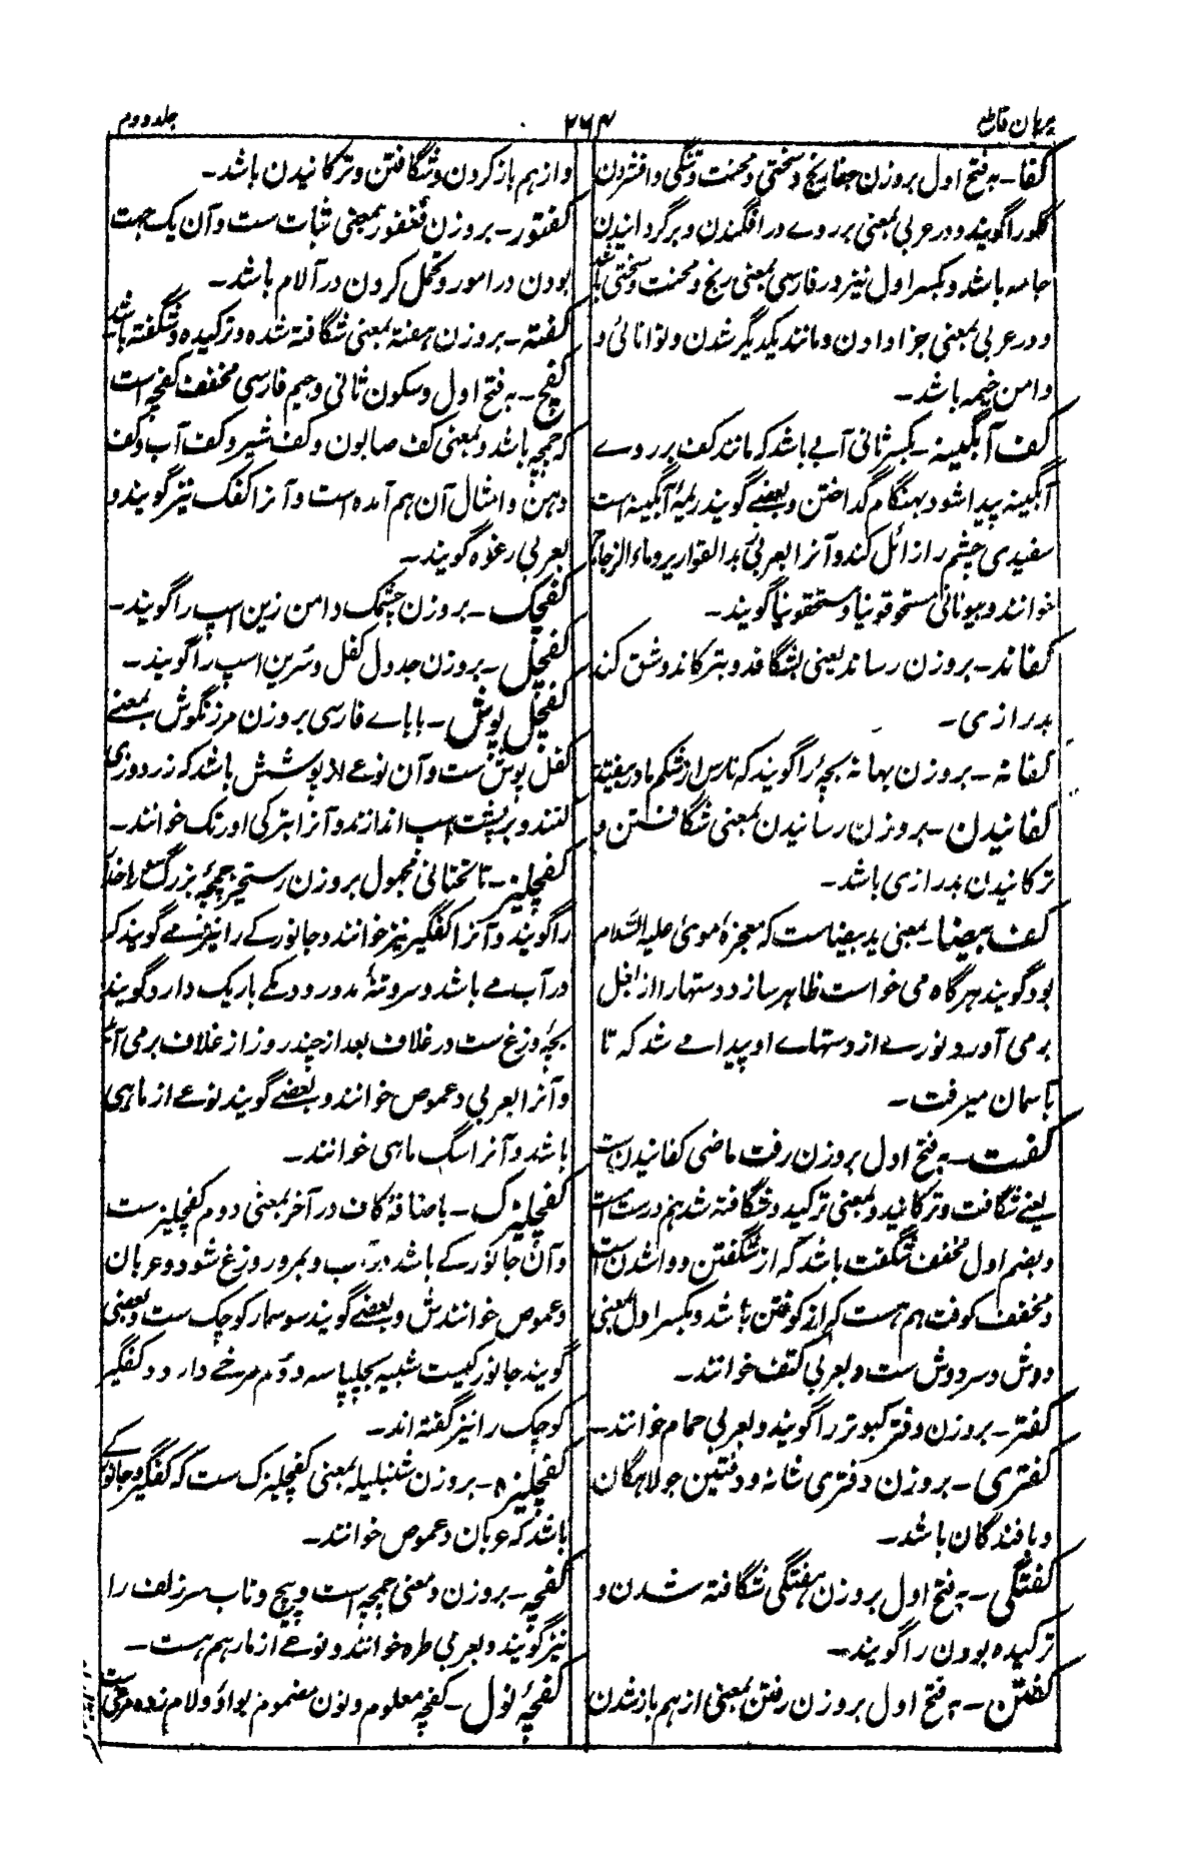 برهان قاطع
۲۶۴
جلد دوم
کفا - بہ فتح اول بروزن جفا رنج و سختی و محنت و تنگی و افشردن
گلو را گویند و در عربی بمعنی بر روے در افگندن و برگردانیدن
جامہ باشد و بکسر اول نیز در فارسی بمعنی رنج و محنت و سختی باشد
و در عربی بمعنی جزا دادن و مانند یکدیگر شدن و توانائی و
دامن خیمہ باشد -
کف آبگینہ - بکسر ثانی آبے باشد کہ مانند کف بر روے
آبگینہ پیدا شود بہنگام گداختن و بعضے گویند ریمۂ آبگینہ است
سفیدی چشم را زائل کند و آنرا بعربی زبد القواریر و ماء الزجاج
خوانند و بیونانی مسحوقونیا و سحقونیا گویند -
کفاند - بروزن رساند یعنی بشگافد و بترکاند و شق کند
بدرازی -
کفانہ - بروزن بہانہ بچۂ را گویند کہ نارس از شکم مادر بیفتد
کفانیدن - بروزن رسانیدن بمعنی شگافتن و
ترکانیدن بدرازی باشد -
کف بیضا - بمعنی ید بیضاست کہ معجزۂ موسیٰ علیہ السّلام
بود گویند ہرگاہ می خواست ظاہر سازد دستہا را از بغل
برمی آورد نورے از دستہاے او پیدا مے شد کہ تا
بآسمان میرفت -
کفت - بہ فتح اول بروزن رفت ماضی کفانیدن ست
یعنے شگافت و ترکانید و بمعنی ترکید و شگافتہ شد ہم درست است
و بضم اول مخفف شگفت باشد کہ از شگفتن و واشدن است
و مخفف کوفت ہم ہست کہ از کوفتن باشد و بکسر اول بمعنی
دوش و سردوش ست و بعربی کتف خوانند -
کفتر - بروزن دفتر کبوتر را گویند و بعربی حمام خوانند -
کفتری - بروزن دفتری شانہ و دفتین جولاہگان
و بافندگان باشد -
کفتگی - بہ فتح اول بروزن ہفتگی شگافتہ شدن و
ترکیدہ بودن را گویند -
کفتن - بہ فتح اول بروزن رفتن بمعنی از ہم باز شدن
و از ہم باز کردن و شگافتن و ترکانیدن باشد -
کفتور - بروزن فغفور بمعنی ثبات ست و آن یک جہت
بودن در امور و تحمل کردن در آلام باشد -
کفتہ - بروزن ہفتہ بمعنی شگافتہ شدہ و ترکیدہ و شگفتہ باشد
کفچ - بہ فتح اول و سکون ثانی و جیم فارسی مخفف کفچہ است
کہ چمچہ باشد و بمعنی کف صابون و کف شیر و کف آب و کف
دہن و امثال آن ہم آمدہ است و آنرا کفک نیز گویند و
بعربی رغوہ گویند -
کفچک - بروزن چشمک دامن زین اسپ را گویند -
کفچل - بروزن جدول کفل و سرین اسپ را گویند -
کفچل پوش - با باے فارسی بروزن مرزنگوش بمعنے
کفل پوش ست و آن نوعے از پوشش باشد کہ زردوزی
کنند و بر پشت اسپ اندازند و آنرا بترکی اورتک خوانند -
کفچلیز - با تحتانی مجہول بروزن رستخیز چمچۂ بزرگ سوراخدار
را گویند و آنرا کفگیر نیز خوانند و جانورکے را نیز مے گویند کہ
در آب مے باشد و سروتنۂ مدور و دمکے باریک دارد گویند
بچۂ وزغ ست در غلاف بعد از چند روز از غلاف برمی آید
و آنرا بعربی دعموص خوانند و بعضے گویند نوعے از ماہی
باشد و آنرا سگ ماہی خوانند -
کفچلیزک - باضافۂ کاف در آخر بمعنی دوم کفچلیز ست
و آن جانورکے باشد در آب و بمرور وزغ شود و عربان
دعموص خوانندش و بعضے گویند سوسمار کوچک ست و بعضی
گویند جانورکیست شبیہ بچلپاسہ و دُم سرخے دارد و کفگیر
کوچک را نیز گفتہ اند -
کفچلیزہ - بروزن شنبلیلہ بمعنی کفچلیزک ست کہ کفگیر و جانورکے
باشد کہ عربان دعموص خوانند -
کفچہ - بروزن و معنی چمچہ است و پیچ و تاب سرزلف را
نیز گویند و بعربی طرہ خوانند و نوعے از مار ہم ہست -
کفچۂ نول - کفچہ معلوم و نون مضموم بواؤ و لام زدہ مرغی ست